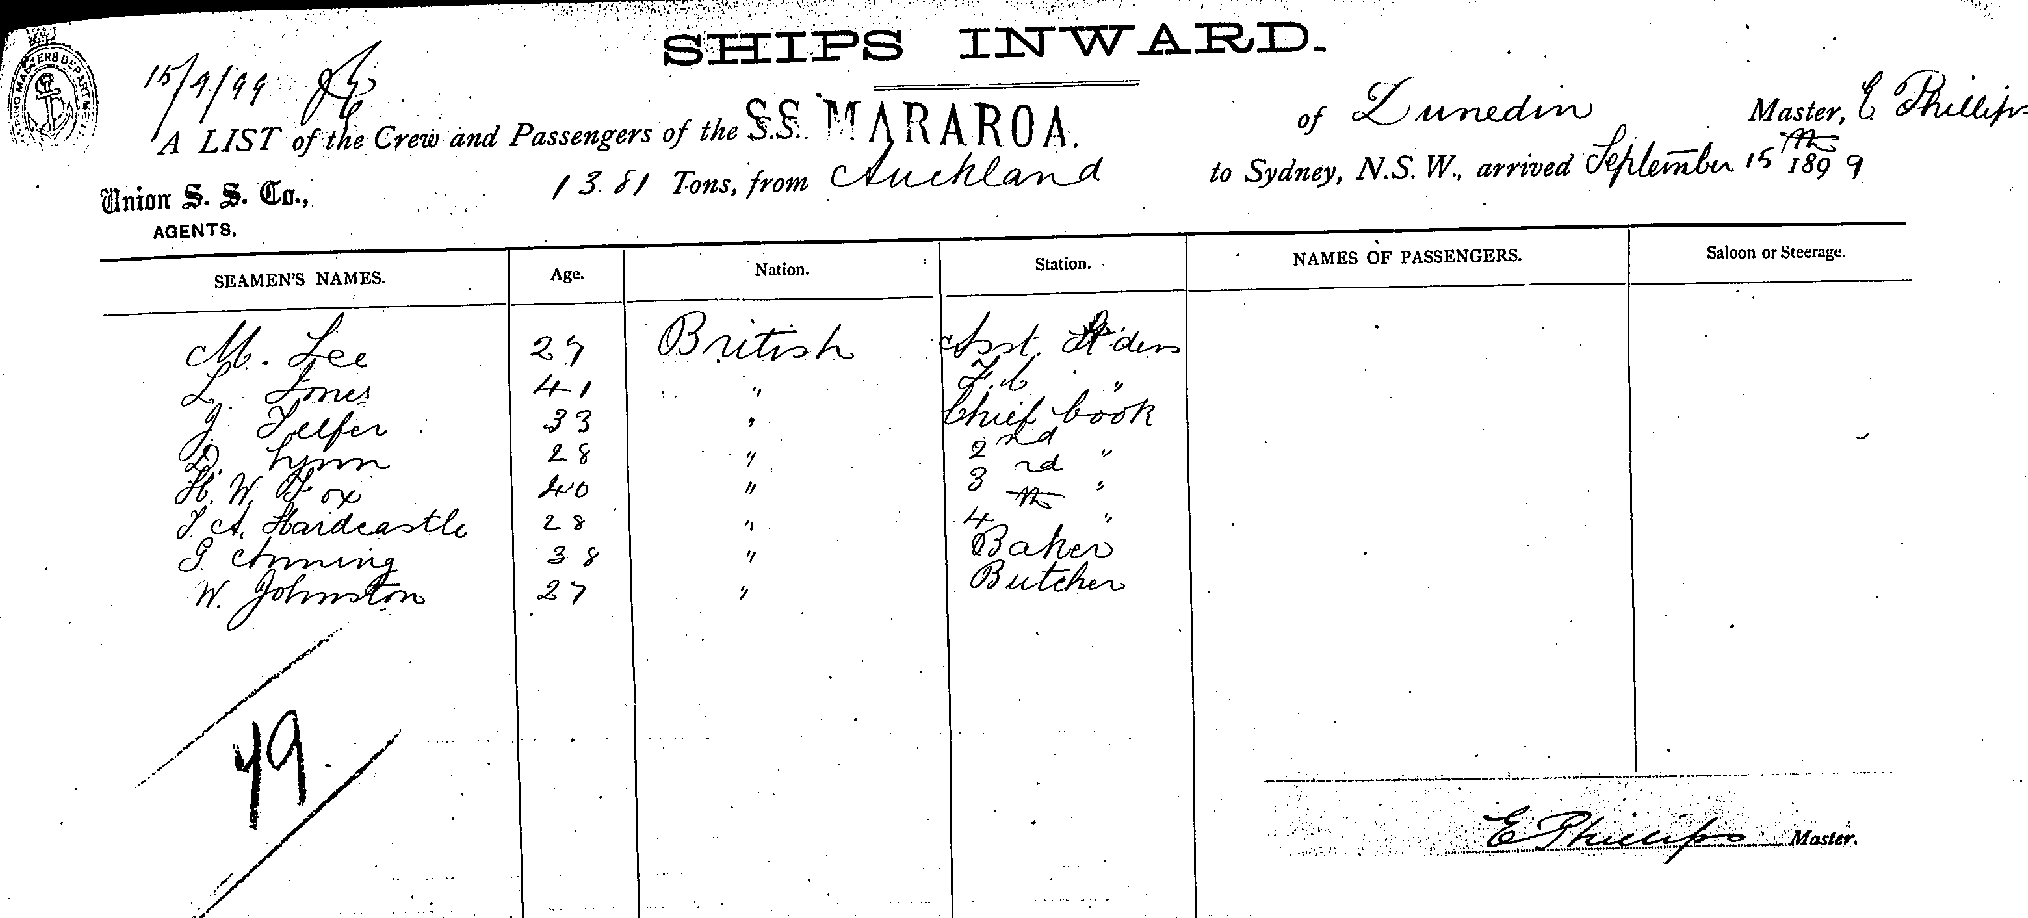 SHIPS INWARD.
15/9/99
A LIST of the Crew and Passengers of the S.S. MARAROA. of Dunedin Master, E Phillips
Union S. S. Co., 1381 Tons, from Auckland to Sydney, N.S.W., arrived September 15th 1899
AGENTS.
SEAMEN'S NAMES. Age. Nation. Station. NAMES OF PASSENGERS. Saloon or Steerage.
M. Lee 27 British Asst.
L. Jones 41 " "
J. Telfer 33 " Chief Cook
D. Lynn 28 " 2nd "
H. W. Fox 40 " 3rd "
T. A. Hardcastle 28 " 4th "
G. Anning 38 " Baker
W. Johnston 27 " Butcher
79
E Phillips Master.